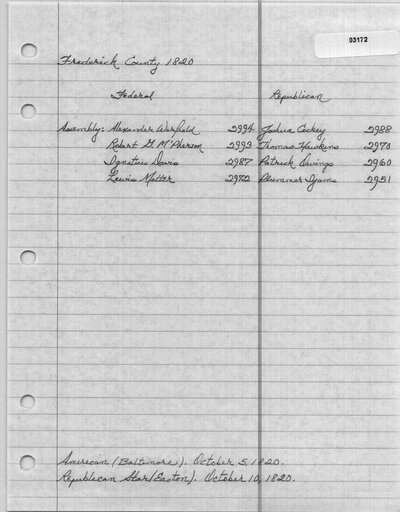 03172
Frederick County 1820
Federal Republican
Assembly: Alexander Warfield 2994 Joshua Cockey 2988
Robert G. McPherson 2993 Thomas Hawkins 2970
Ignatius Davis 2987 Patrick Owings 2960
Lewis Motter 2972 Plummer Ijams 2951
American (Baltimore). October 5, 1820.
Republican Star (Easton). October 10, 1820.